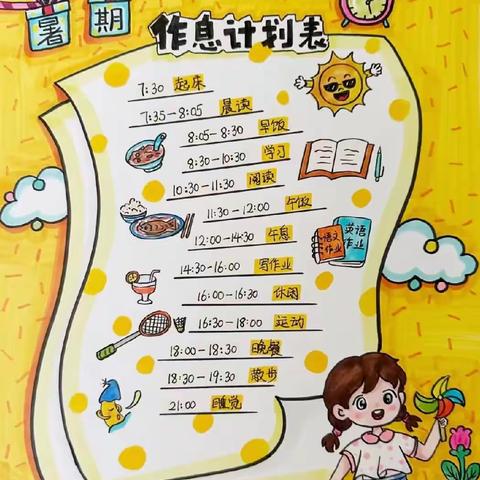 暑期
作息计划表
7:30 起床
7:35-8:05 晨读
8:05-8:30 早饭
8:30-10:30 学习
10:30-11:30 阅读
11:30-12:00 午饭
12:00-14:30 午息
14:30-16:00 写作业
16:00-16:30 休闲
16:30-18:00 运动
18:00-18:30 晚餐
18:30-19:30 散步
21:00 睡觉
语文
作业
英语
作业